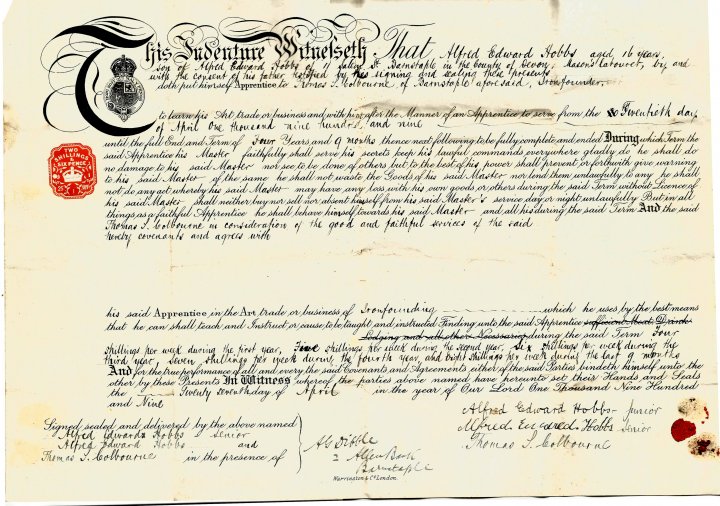 This Indenture Witnesseth That Alfred Edward Hobbs aged 16 years
son of Alfred Edward Hobbs of 4 Barnstaple in the County of Devon, Masons labourer, by and
with the consent of his father testified by his signing and sealing these presents
doth put himself Apprentice to Thomas S. Colbourne, of Barnstaple aforesaid, Ironfounder,
to learn his Art trade or business and with him after the Manner of an Apprentice to serve from the Twentieth day
of April One thousand nine hundred and nine
until the full End and Term of Four Years and 9 months thence next following to be fully complete and ended During which Term the
said Apprentice his Master faithfully shall serve his secrets keep his lawful commands everywhere gladly do he shall do
no damage to his said Master nor see to be done of others but to the best of his power shall prevent or forthwith give warning
to his said Master of the same he shall not waste the Goods of his said Master nor lend them unlawfully to any he shall
not do any act whereby his said Master may have any loss with his own goods or others during the said Term without Licence of
his said Master shall neither buy nor sell nor absent himself from his said Master's service day or night unlawfully But in all
things as a faithful Apprentice he shall behave himself towards his said Master and all his during the said Term And the said
Thomas S. Colbourne in consideration of the good and faithful services of the said
hereby covenants and agrees with
TWO
SHILLINGS
SIX PENCE
his said Apprentice in the Art trade or business of Ironfounding which he uses by the best means
that he can shall teach and Instruct or cause to be taught and instructed Finding unto the said Apprentice sufficient Meat Drink
Lodging and all other Necessaries during the said Term Four
shillings per week during the first year, Five shillings per week during the second year, Six shillings per week during the
third year, seven shillings per week during the fourth year, and eight shillings per week during the last 9 months
And for the true performance of all and every the said Covenants and Agreements either of the said Parties bindeth himself unto the
other by these Presents In Witness whereof the parties above named have hereunto set their Hands and Seals
the Twenty Seventh day of April in the year of Our Lord One Thousand Nine Hundred
and Nine
Alfred Edward Hobbs junior
Alfred Edward Hobbs Senior
Thomas S. Colbourne
Signed sealed and delivered by the above named
Alfred Edward Hobbs Senior
Alfred Edward Hobbs and
Thomas S. Colbourne in the presence of
2
Barnstaple
Warrington & Co London